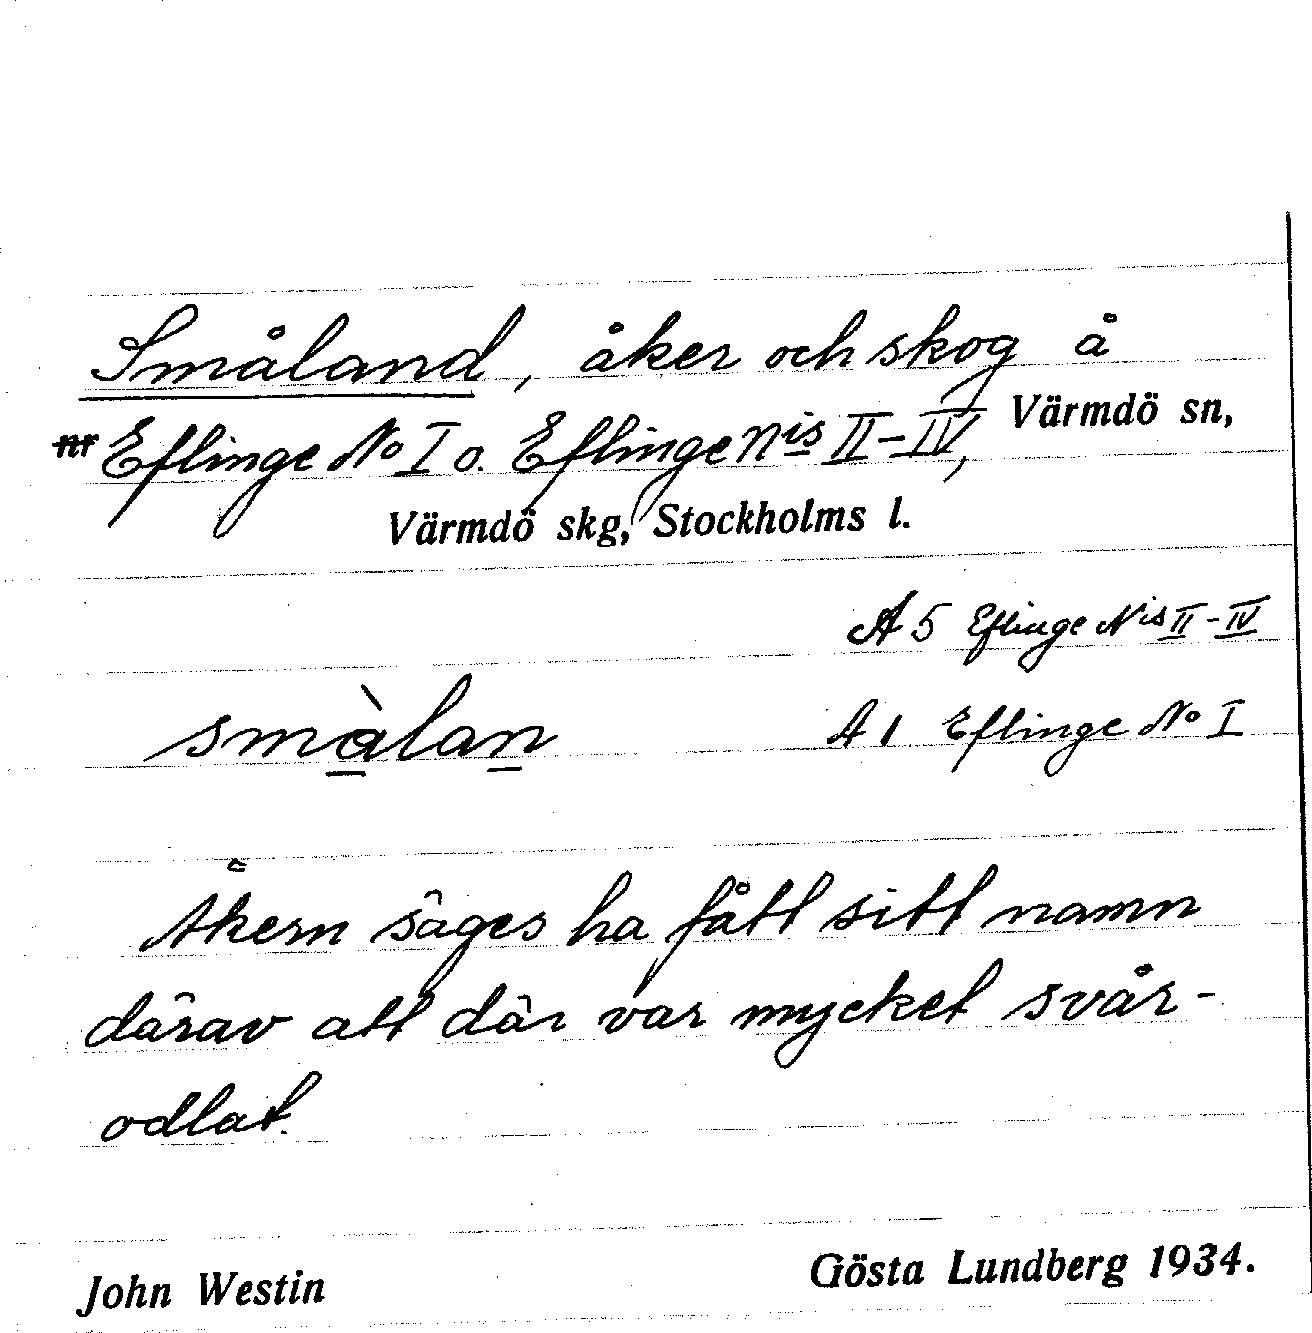 Småland, åker och skog å
nr Eflinge No I o. Eflinge Nis II-IV, Värmdö sn,
Värmdö skg, Stockholms l.
A 5 Eflinge Nis II-IV
smàlan
A 1 Eflinge No I
Åkern säges ha fått sitt namn
därav att där var mycket svår-
odlat.
John Westin
Gösta Lundberg 1934.